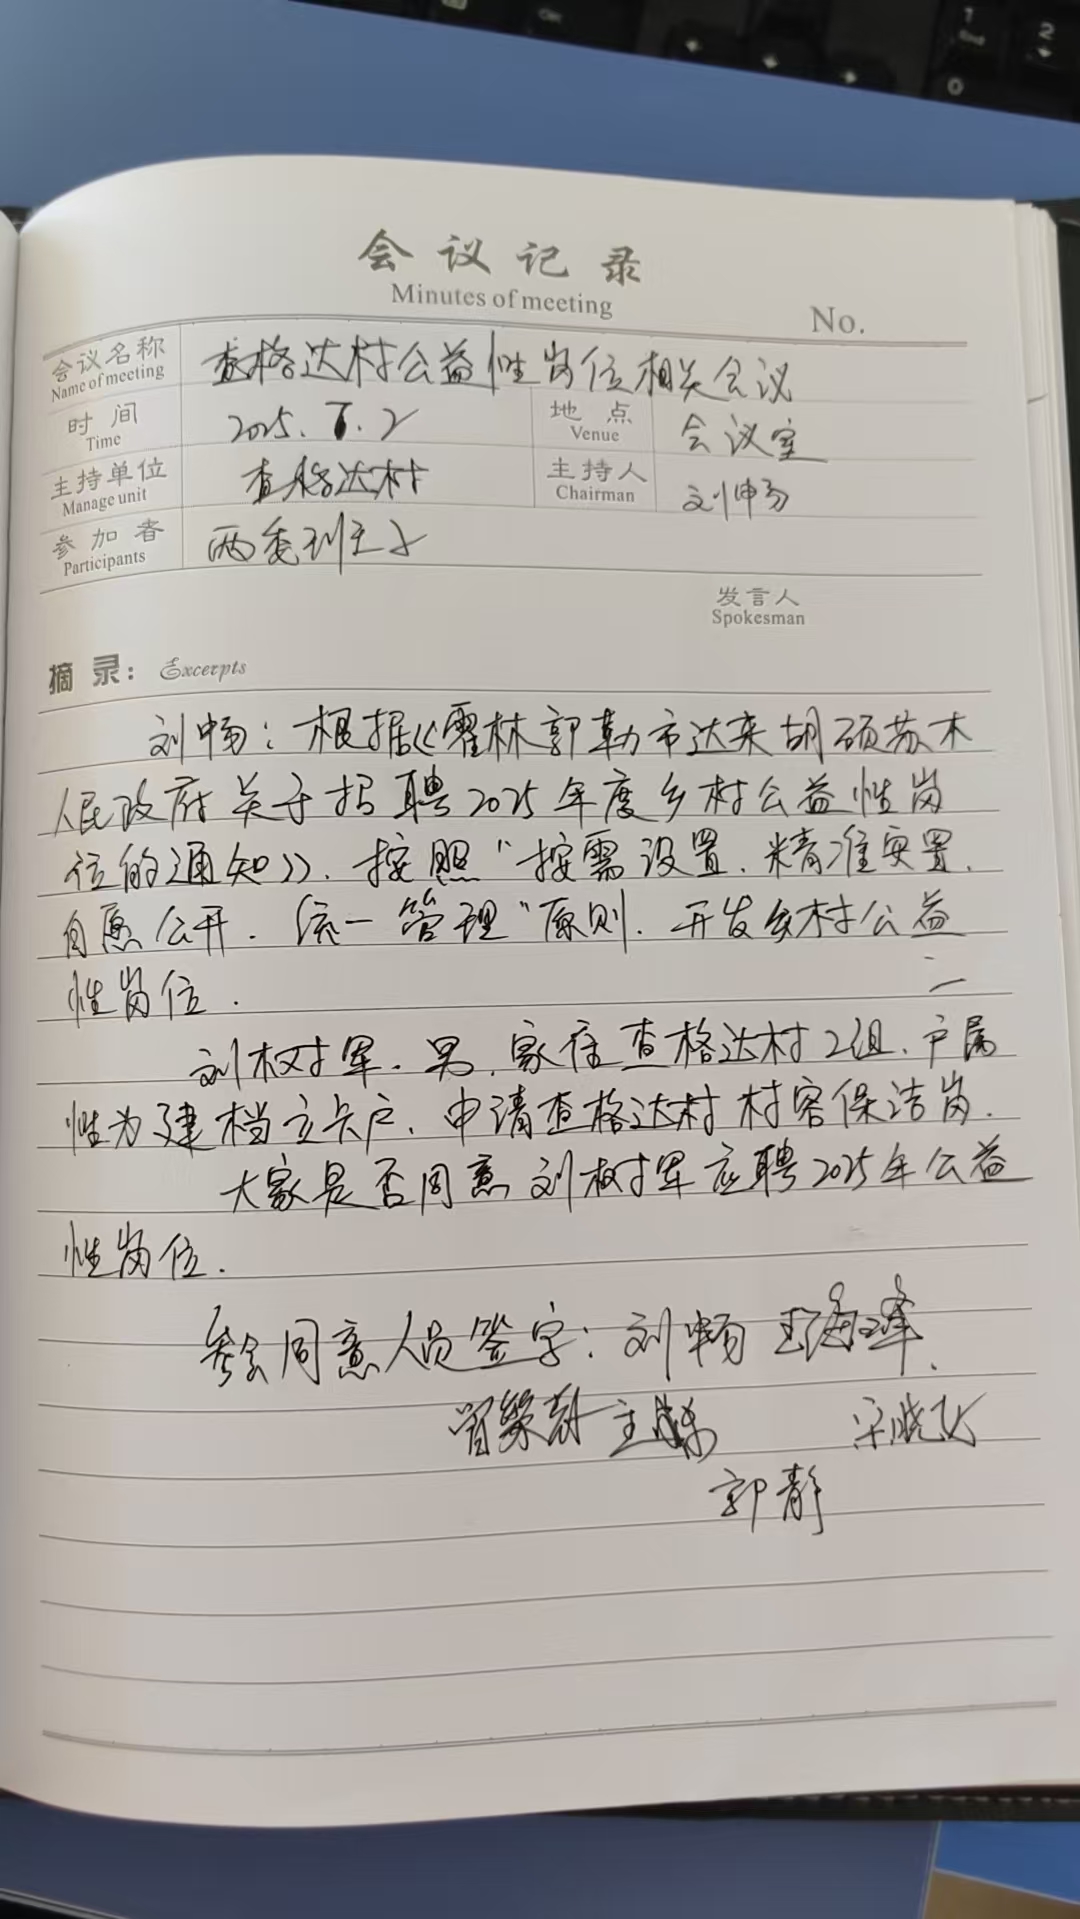 Ctrl
1
End
2
0
会议记录
Minutes of meeting
No.
会议名称 查格达村公益性岗位相关会议
Name of meeting
时间 2025. .2 地点 会议室
Time Venue
主持单位 查格达村 主持人 刘畅
Manage unit Chairman
参加者 两委班子
Participants
发言人
Spokesman
摘录: Excerpts
刘畅:根据《霍林郭勒市达来胡硕苏木
人民政府关于招聘2025年度乡村公益性岗
位的通知》、按照“按需设置、精准安置、
自愿公开、统一管理”原则、开发乡村公益
性岗位.
刘树军、男、家住查格达村2组、户属
性为建档立卡户、申请查格达村村容保洁岗.
大家是否同意刘树军应聘2025年公益
性岗位.
参会同意人员签字:刘畅
宋晓飞
郭静